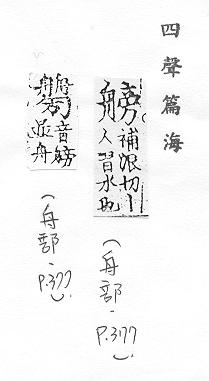 四聲篇海
艕補浪切丨
人習水也
(舟部.P.377)
音艕
並舟
(舟部.P.377)